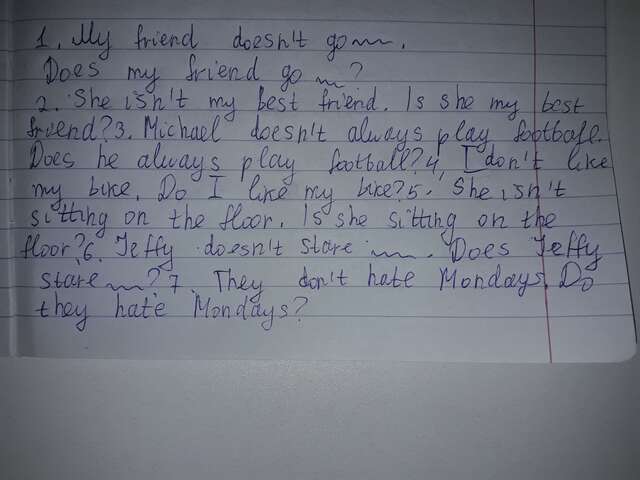 1. My friend doesn't go ~~.
Does my friend go ~~?
2. She isn't my best friend. Is she my best
friend? 3. Michael doesn't always play football.
Does he always play football? 4. I don't like
my bike. Do I like my bike? 5. She isn't
sitting on the floor. Is she sitting on the
floor? 6. Jeffy doesn't stare ~~. Does Jeffy
stare ~~? 7. They don't hate Mondays. Do
they hate Mondays?